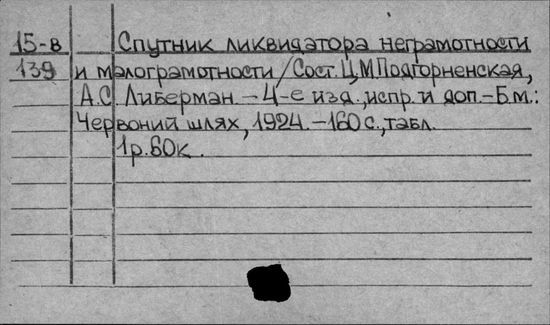 15-в Спутник ликвидатора неграмотности
139 и малограмотности/Сост. Ц.М Подгорненская,
А.С. Либерман.-4-е изд.,испр. и доп.-Б.м.:
Червоний шлях, 1924.-160 с.,табл.
1р.60к.